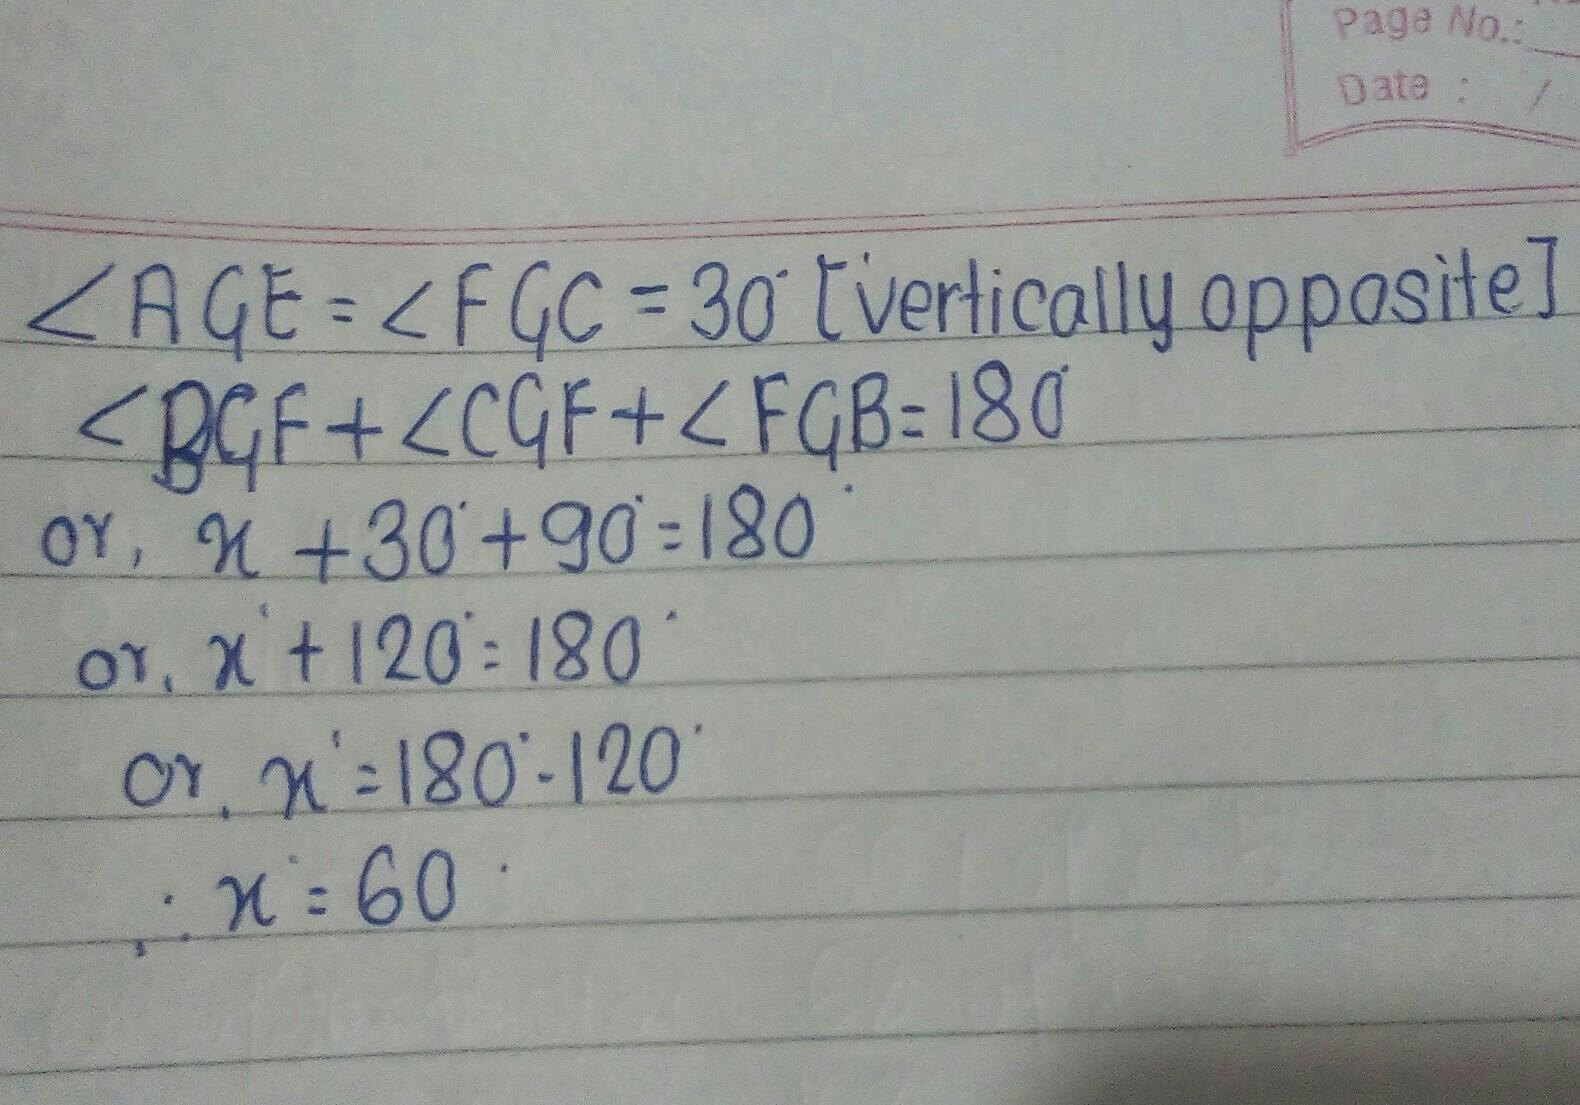 Page No.:
Date : /
∠AGE = ∠FGC = 30° [vertically opposite]
∠BGF + ∠CGF + ∠FGB = 180°
or, x + 30° + 90° = 180°
or, x° + 120° = 180°
or, x° = 180° - 120°
∴ x° = 60°